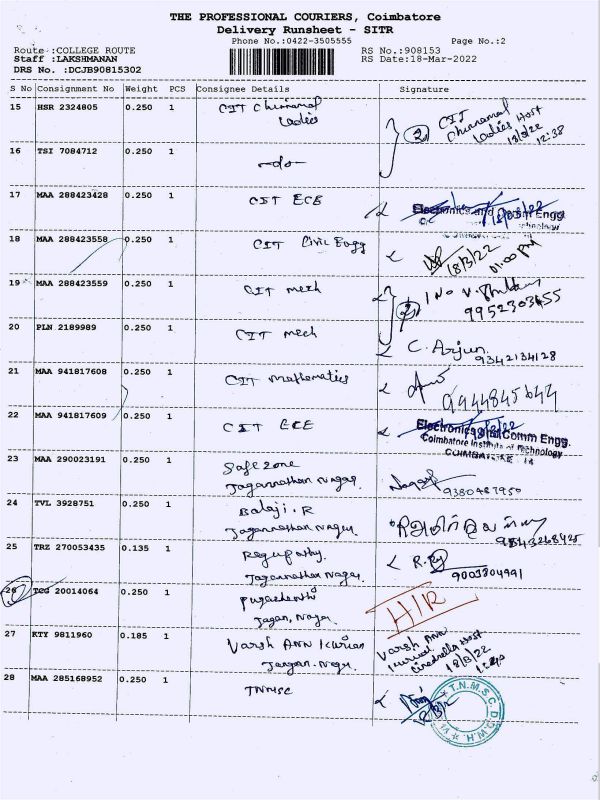 THE PROFESSIONAL COURIERS, Coimbatore
Delivery Runsheet - SITR
Phone No.:0422-3505555 Page No.:2
Route :COLLEGE ROUTE RS No.:908153
Staff :LAKSHMANAN RS Date:18-Mar-2022
DRS No. :DCJB90815302
S No Consignment No Weight PCS Consignee Details Signature
15 HSR 2324805 0.250 1 CIT Chinnamal
Ladies
2 CIT
Chinnamal
Ladies Host
18/3/22
12:38
16 TSI 7084712 0.250 1 -do-
17 MAA 288423428 0.250 1 CIT ECE Electronics and Comm Engg
18/3/22
18 MAA 288423558 0.250 1 CIT Civil Engg 18/3/22
01:00 PM
19 MAA 288423559 0.250 1 CIT mech 2
9952303655
20 PLN 2189989 0.250 1 CIT mech C. Arjun
9342134128
21 MAA 941817608 0.250 1 CIT mathematics 9944845644
22 MAA 941817609 0.250 1 CIT ECE Electronics and Comm Engg.
Coimbatore Institute of Technology
23 MAA 290023191 0.250 1 Safe Zone
Jagannathan Nagar
9380487950
24 TVL 3928751 0.250 1 Balaji. R
Jagannathan Nagar
9843268425
25 TRZ 270053435 0.135 1 Regupathy.
Jagannathan Nagar
9003804991
26 TCG 20014064 0.250 1 Pugazhenthi
Jagan, Nagar
HIR
27 KTY 9811960 0.185 1 Varsh Ann Kurian
Jagan. Nagar
Varsh Ann
Kurian
Host
18/3/22
28 MAA 285168952 0.250 1 TNMSC
T.N.M.S.C.